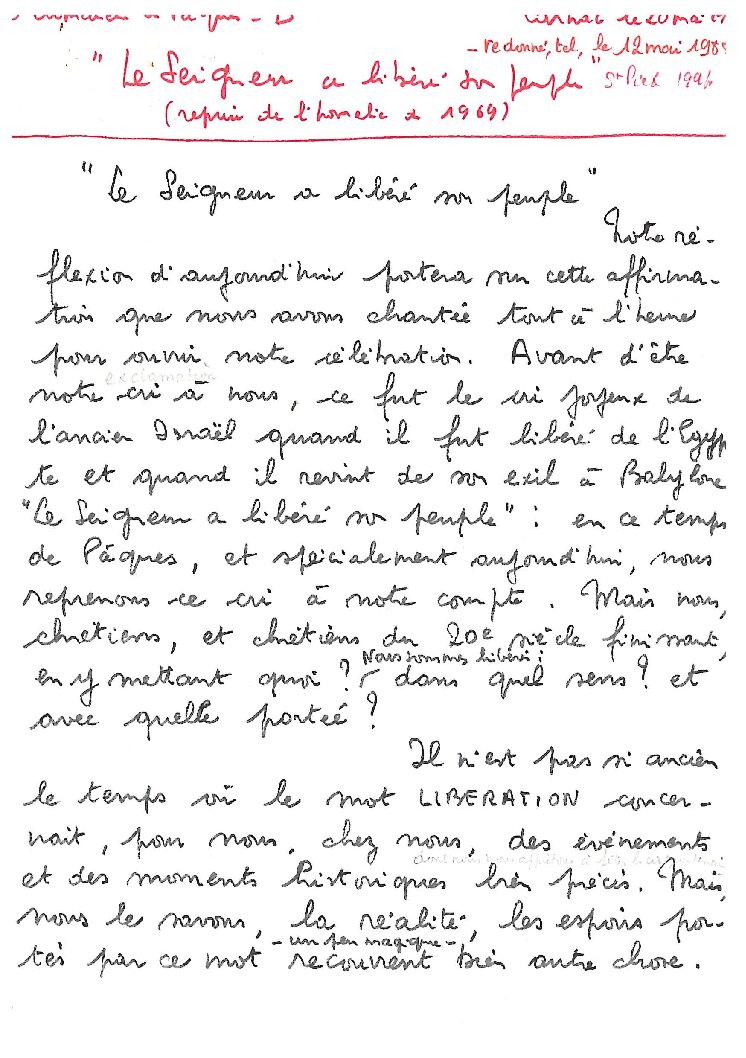 de Pâques - B
- redonné, tel, le 12 mai 198
"Le Seigneur a libéré son peuple"
(reprise de l'homélie de 1969)
"Le Seigneur a libéré son peuple"
Notre ré-
flexion d'aujourd'hui portera sur cette affirma-
tion que nous avons chantée tout à l'heure
pour ouvrir notre célébration. Avant d'être
exclamation
notre cri à nous, ce fut le cri joyeux de
l'ancien Israël quand il fut libéré de l'Egyp
te et quand il revint de son exil à Babylone
"Le Seigneur a libéré son peuple" : en ce temps
de Pâques, et spécialement aujourd'hui, nous
reprenons ce cri à notre compte. Mais nous,
chrétiens, et chrétiens du 20e siècle finissant,
Nous sommes libérés :
en y mettant quoi ? dans quel sens ? et
avec quelle portée ?
Il n'est pas si ancien
le temps où le mot LIBERATION concer-
nait, pour nous, chez nous, des événements
et des moments historiques bien précis. Mais,
nous le savons, la réalité, les espoirs por-
- un peu magique -
tés par ce mot recouvrent bien autre chose.